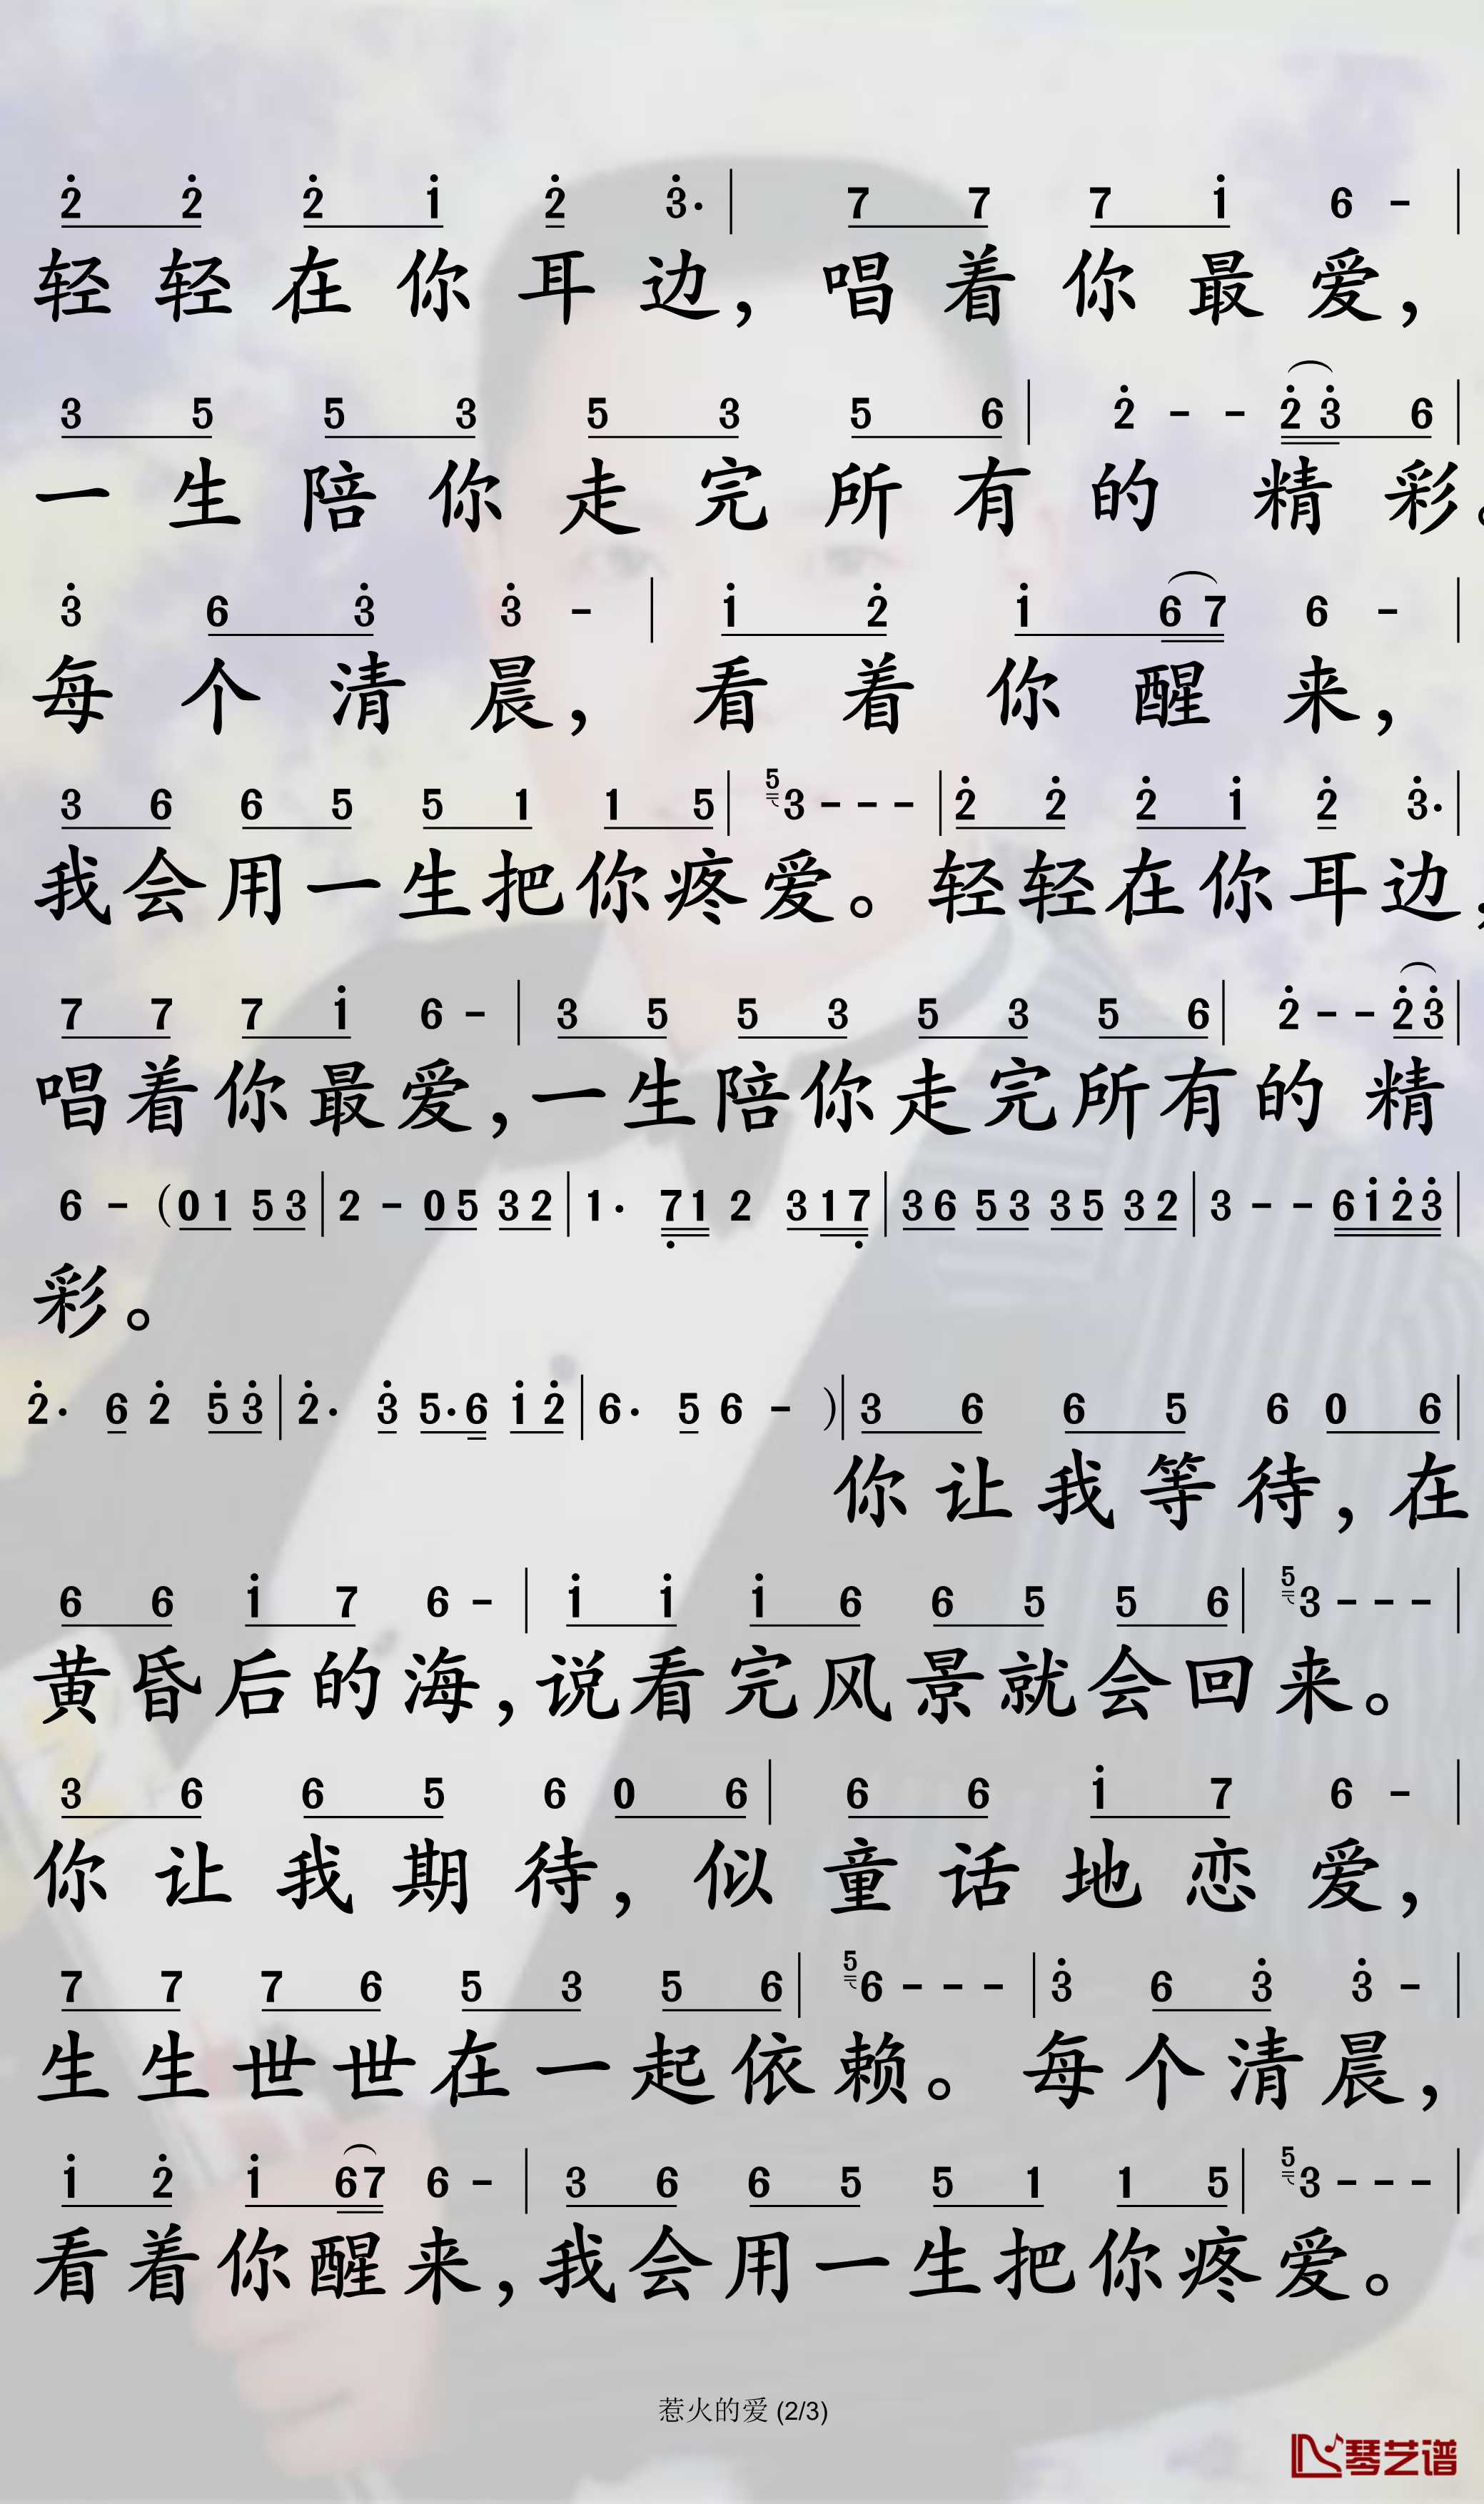 2̇ 2̇ 2̇ 1̇ 2̇ 3̇· | 7 7 7 1̇ 6 - |
轻轻在你耳边，唱着你最爱，
3 5 5 3 5 3 5 6 | 2̇ - - 2̇ 3̇ 6 |
一生陪你走完所有的精彩。
3̇ 6 3̇ 3̇ - | 1̇ 2̇ 1̇ 6 7 6 - |
每个清晨，看着你醒来，
3 6 6 5 5 1 1 5 | 5 3 - - - | 2̇ 2̇ 2̇ 1̇ 2̇ 3̇· |
我会用一生把你疼爱。轻轻在你耳边，
7 7 7 1̇ 6 - | 3 5 5 3 5 3 5 6 | 2̇ - - 2̇ 3̇ |
唱着你最爱，一生陪你走完所有的精
6 - (0 1 5 3 | 2 - 0 5 3 2 | 1· 7̣ 1 2 3 1 7̣ | 3 6 5 3 3 5 3 2 | 3 - - 6 1̇ 2̇ 3̇ |
彩。
2̇· 6 2̇ 5̇ 3̇ | 2̇· 3̇ 5· 6 1̇ 2̇ | 6· 5 6 - ) | 3 6 6 5 6 0 6 |
你让我等待，在
6 6 1̇ 7 6 - | 1̇ 1̇ 1̇ 6 6 5 5 6 | 5 3 - - - |
黄昏后的海，说看完风景就会回来。
3 6 6 5 6 0 6 | 6 6 1̇ 7 6 - |
你让我期待，似童话地恋爱，
7 7 7 6 5 3 5 6 | 5 6 - - - | 3̇ 6 3̇ 3̇ - |
生生世世在一起依赖。每个清晨，
1̇ 2̇ 1̇ 6 7 6 - | 3 6 6 5 5 1 1 5 | 5 3 - - - |
看着你醒来，我会用一生把你疼爱。
惹火的爱 (2/3)
琴艺谱